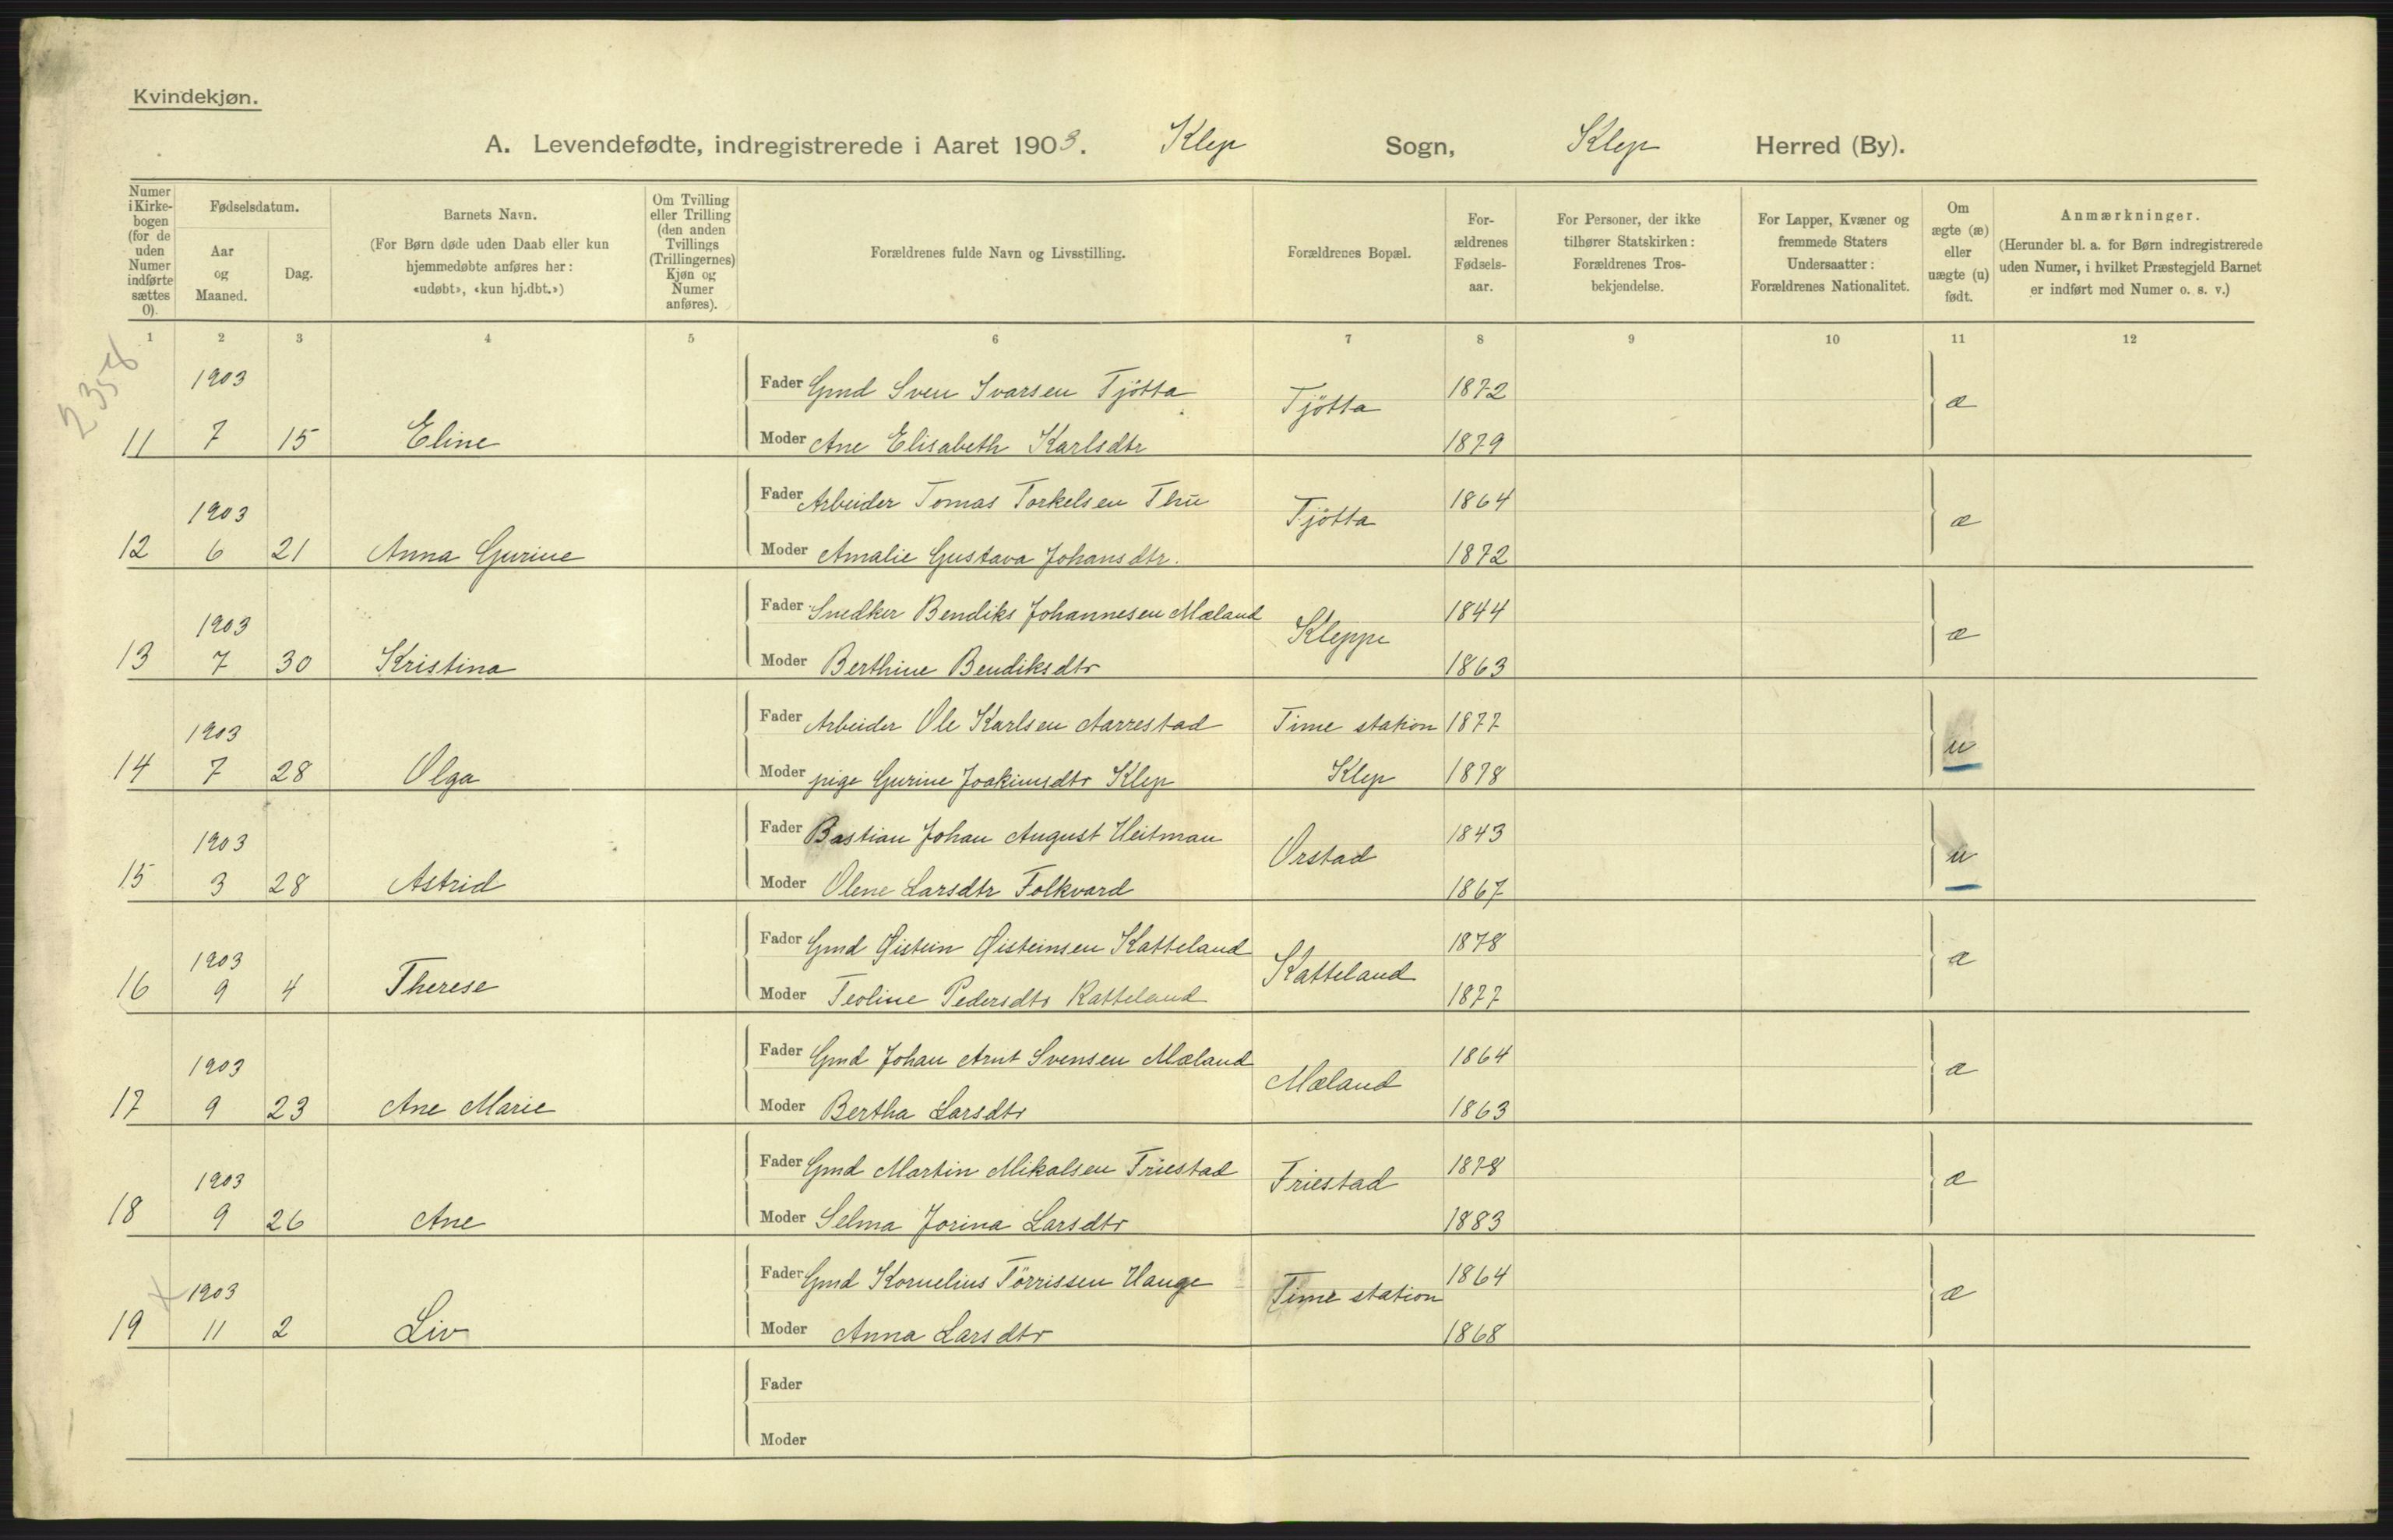 Kvindekjøn.
A. Levendefødte, indregistrerede i Aaret 1903. Klep Sogn, Klep Herred (By).
Numer i Kirkebogen (for de uden Numer indførte sættes 0).
Fødselsdatum.
Aar og Maaned.
Dag.
Barnets Navn.
(For Børn døde uden Daab eller kun hjemmedøbte anføres her: «udøbt», «kun hj.dbt.»)
Om Tvilling eller Trilling (den anden Tvillings (Trillingernes) Kjøn og Numer anføres).
Forældrenes fulde Navn og Livsstilling.
Forældrenes Bopæl.
Forældrenes Fødselsaar.
For Personer, der ikke tilhører Statskirken: Forældrenes Trosbekjendelse.
For Lapper, Kvæner og fremmede Staters Undersaatter: Forældrenes Nationalitet.
Om ægte (æ) eller uægte (u) født.
Anmærkninger.
(Herunder bl. a. for Børn indregistrerede uden Numer, i hvilket Præstegjeld Barnet er indført med Numer o. s. v.)
1 2 3 4 5 6 7 8 9 10 11 12
2358
1903 Fader Gmd Sven Ivarsen Tjøtta Tjøtta 1872 æ
11 7 15 Eline Moder Ane Elisabeth Karlsdtr 1879
1903 Fader Arbeider Tomas Torkelsen Thu Tjøtta 1864 æ
12 6 21 Anna Gurine Moder Amalie Gustava Johansdtr. 1872
1903 Fader Snedker Bendiks Johannesen Mæland Kleppe 1844 æ
13 7 30 Kristina Moder Berthine Bendiksdtr 1863
1903 Fader Arbeider Ole Karlsen Aarrestad Time station 1877 u
14 7 28 Olga Moder pige Gurine Joakimsdtr Klep Klep 1878
1903 Fader Bastian Johan August Heitman Orstad 1843 u
15 3 28 Astrid Moder Olene Larsdtr Folkvard 1867
1903 Fader Gmd Øistein Øisteinsen Katteland Katteland 1878 æ
16 9 4 Therese Moder Teoline Pedersdtr Katteland 1877
1903 Fader Gmd Johan Arnt Svensen Mæland Mæland 1864 æ
17 9 23 Ane Marie Moder Bertha Larsdtr 1863
1903 Fader Gmd Martin Mikalsen Friestad Friestad 1878 æ
18 9 26 Ane Moder Selma Jorina Larsdtr 1883
1903 Fader Gmd Kornelius Tørrissen Hauge Time station 1864 æ
19 11 2 Liv Moder Anna Larsdtr 1868
Fader
Moder